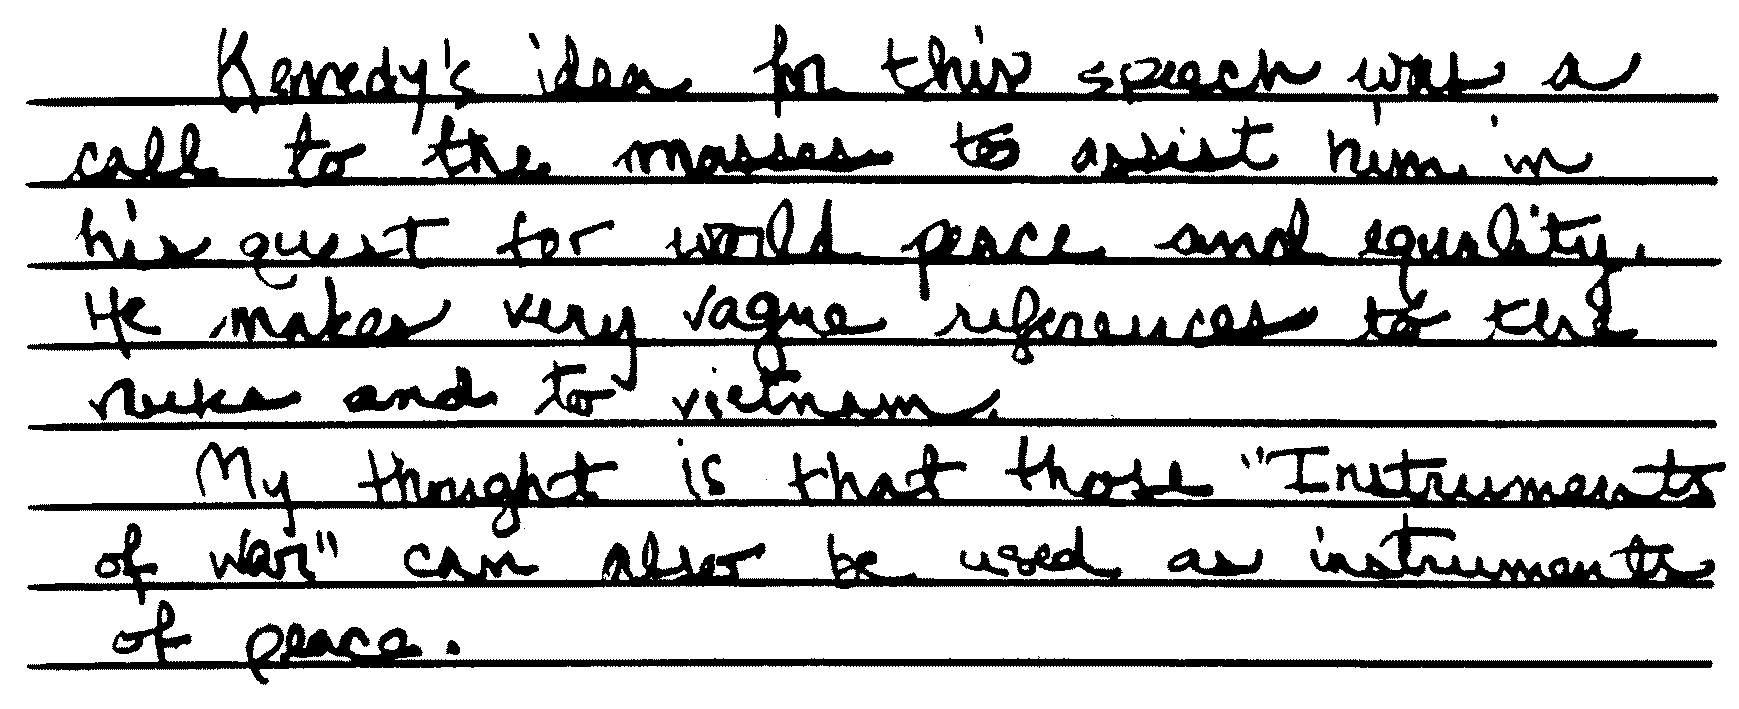 Kennedy's idea for this speach was a
call to the masses to assist him in
his quest for world peace and equality.
He makes very vague references to the
nuks and to vietnam.
My thought is that those "Instruments
of war" can also be used as instruments
of peace.